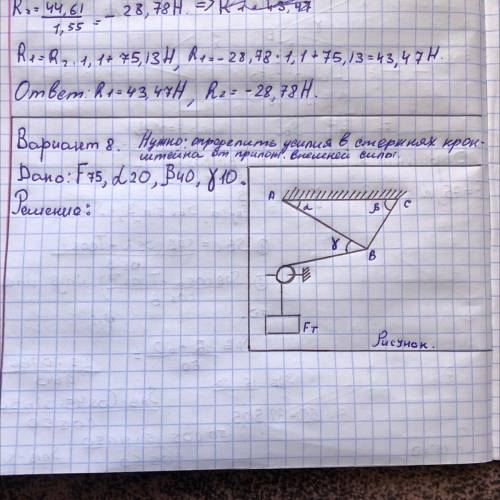 R₂ = 44,61 / 1,55 = - 28,78Н. => R1 = 43,47
R1 = R₂ · 1,1 + 75,13Н, R1 = -28,78 · 1,1 + 75,13 = 43,47Н.
Ответ: R1 = 43,47Н, R₂ = -28,78Н.
Вариант 8. Нужно: определить усилия в стержнях крон-
штейна от прилож. внешней силы.
Дано: F75, α20, β40, γ10.
Решение:
A α β C
γ B
Fт
Рисунок.